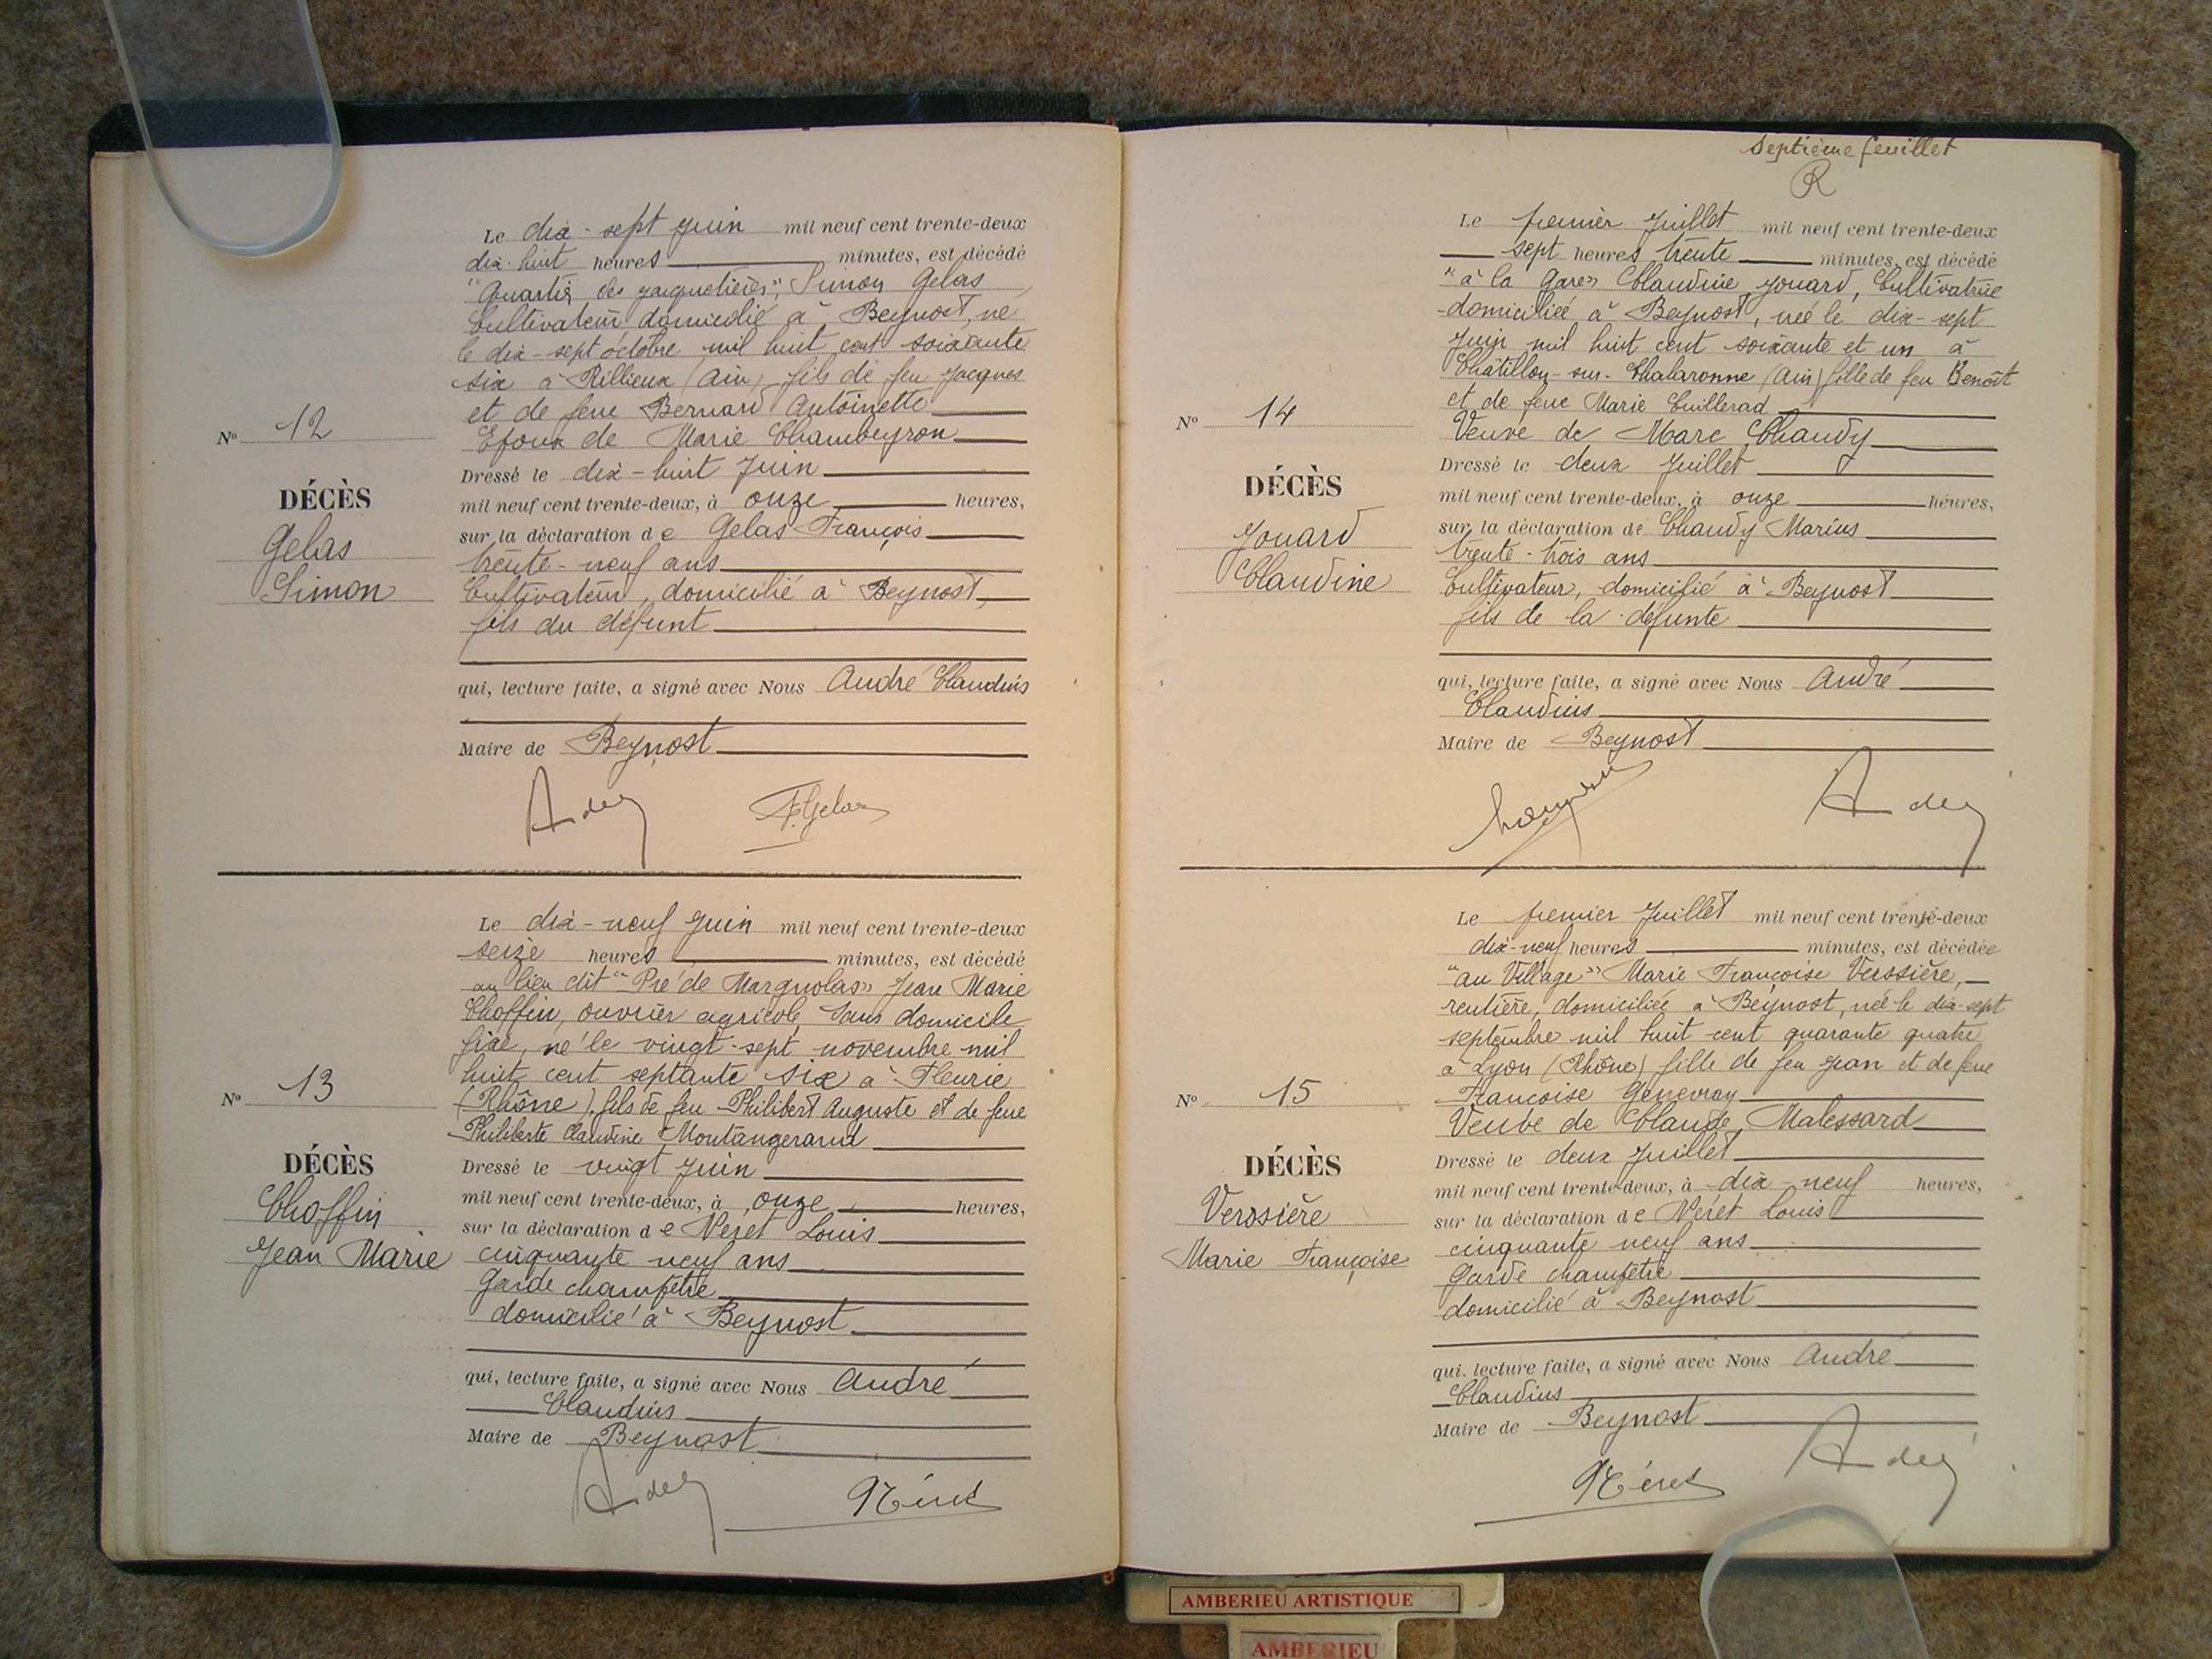 Le dix-sept juin mil neuf cent trente-deux
dix-huit heures minutes, est décédé
"Quartier des Jacquetières", Simon Gelas
Cultivateur domicilié à Beynost, né
le dix-sept octobre mil huit cent soixante
six à Rillieux (Ain), fils de feu Jacques
et de feue Bernard Antoinette
Epoux de Marie Chambeyron
N° 12
Dressé le dix-huit Juin
DÉCÈS
mil neuf cent trente-deux, à onze heures,
Gelas
sur la déclaration de Gelas François
trente-neuf ans
Simon
Cultivateur, domicilié à Beynost,
fils du défunt
qui, lecture faite, a signé avec Nous André Claudius
Maire de Beynost
André F. Gelas
Le dix-neuf juin mil neuf cent trente-deux
seize heures minutes, est décédé
au lieu dit "Pré de Margnolas" Jean Marie
Choffin, ouvrier agricole, sans domicile
fixe, né le vingt-sept novembre mil
huit cent septante six à Fleurie
(Rhône), fils de feu Philibert Auguste et de feue
Philiberte Claudine Montangerand
N° 13
Dressé le vingt Juin
DÉCÈS
mil neuf cent trente-deux, à onze heures,
Choffin
sur la déclaration de Néret Louis
Jean Marie
cinquante neuf ans
Garde champêtre
domicilié à Beynost
qui, lecture faite, a signé avec Nous André
Claudius
Maire de Beynost
André Néret
Septième feuillet
R
Le premier Juillet mil neuf cent trente-deux
sept heures trente minutes, est décédé
"à la Gare" Claudine Jouard, Cultivatrice
domiciliée à Beynost, née le dix-sept
Juin mil huit cent soixante et un à
Châtillon-sur-Chalaronne (Ain) fille de feu Benoît
et de feue Marie Cuillerad
N° 14
Veuve de Marc Chaudy
Dressé le deux Juillet
DÉCÈS
mil neuf cent trente-deux, à onze heures,
Jouard
sur la déclaration de Chaudy Marius
trente-trois ans
Claudine
Cultivateur, domicilié à Beynost
fils de la défunte
qui, lecture faite, a signé avec Nous André
Claudius
Maire de Beynost
André
Le premier Juillet mil neuf cent trente-deux
dix-neuf heures minutes, est décédée
"au Village" Marie Françoise Verssière,
rentière, domiciliée à Beynost, née le dix-sept
septembre mil huit cent quarante quatre
à Lyon (Rhône) fille de feu Jean et de feue
Francoise Genevray
N° 15
Veuve de Claude Malessard
Dressé le deux Juillet
DÉCÈS
mil neuf cent trente-deux, à dix-neuf heures,
Verssière
sur la déclaration de Néret Louis
Marie Françoise
cinquante neuf ans
Garde champêtre
domicilié à Beynost
qui, lecture faite, a signé avec Nous André
Claudius
Maire de Beynost
Néret André
AMBERIEU ARTISTIQUE
AMBERIEU